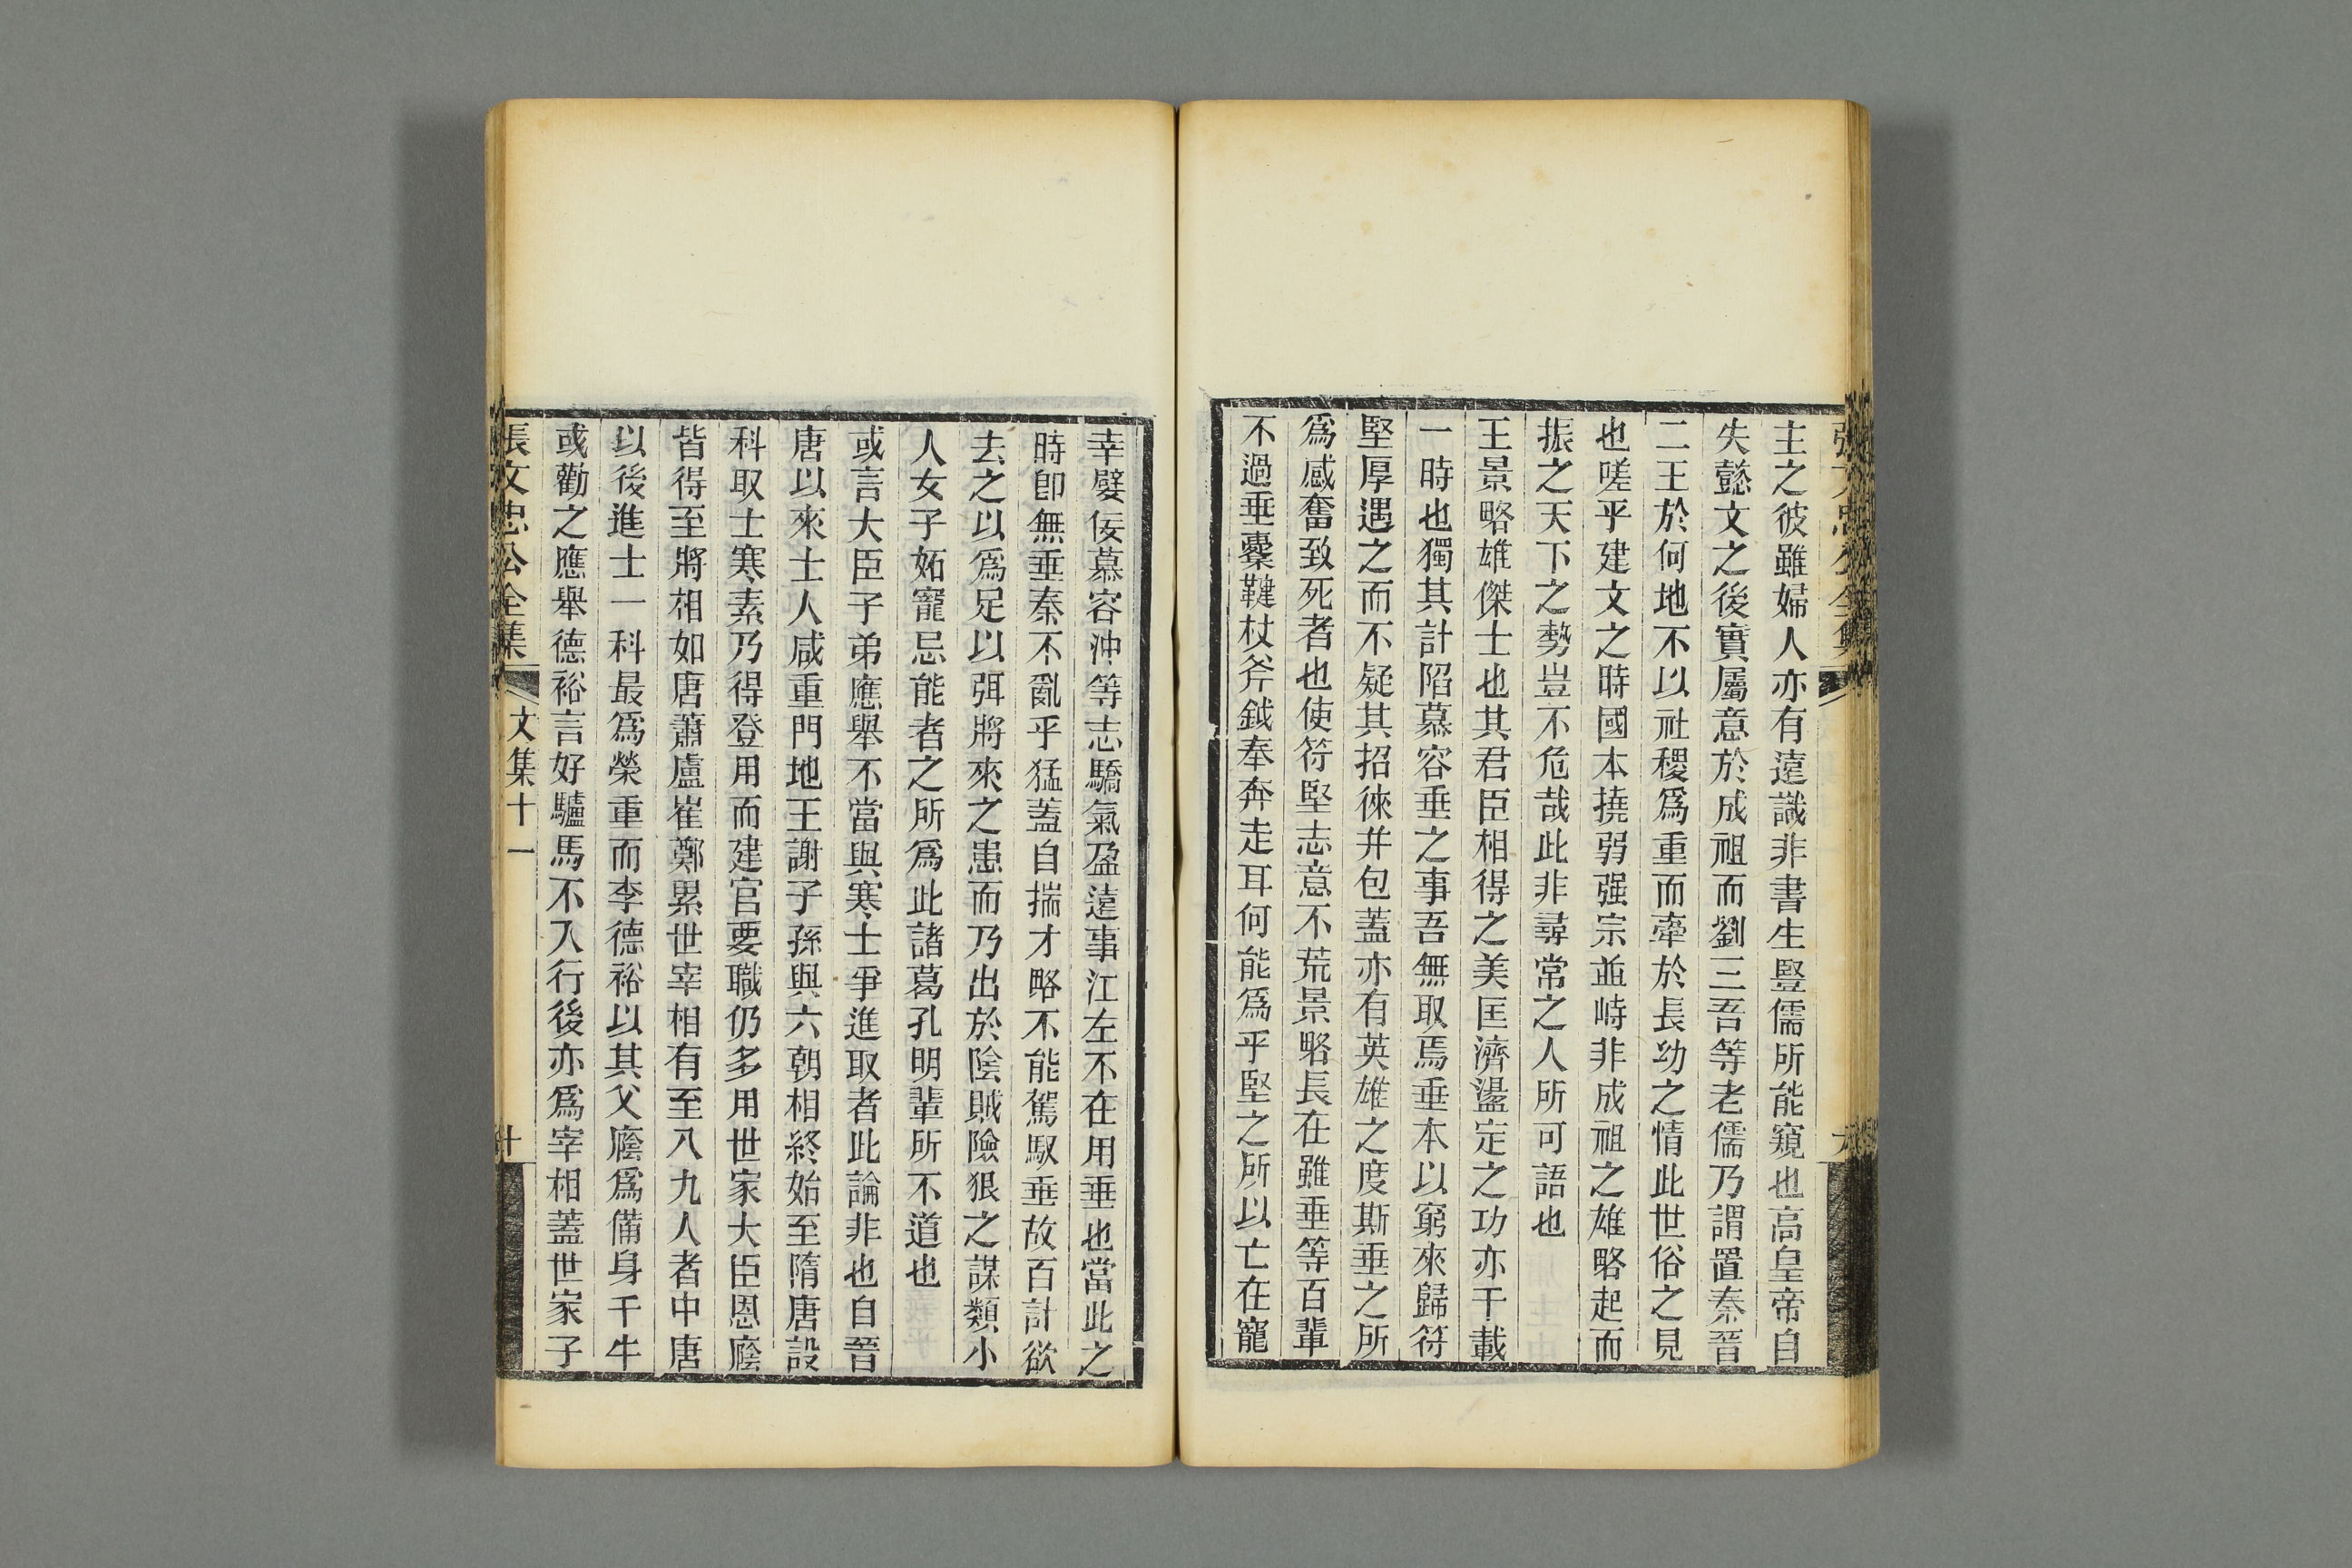 主之彼雖婦人亦有遠識非書生豎儒所能窺也高皇帝自
失懿文之後實屬意於成祖而劉三吾等老儒乃謂置秦晉
二王於何地不以社稷爲重而牽於長幼之情此世俗之見
也嗟乎建文之時國本撓弱强宗並峙非成祖之雄略起而
振之天下之勢豈不危哉此非尋常之人所可語也
王景略雄傑士也其君臣相得之美匡濟盪定之功亦千載
一時也獨其計陷慕容垂之事吾無取焉垂本以窮來歸符
堅厚遇之而不疑其招徠并包蓋亦有英雄之度斯垂之所
爲感奮致死者也使符堅志意不荒景略長在雖垂等百輩
不過垂櫜鞬杖斧鉞奉奔走耳何能爲乎堅之所以亡在寵
幸嬖佞慕容沖等志驕氣盈遠事江左不在用垂也當此之
時卽無垂秦不亂乎猛蓋自揣才略不能駕馭垂故百計欲
去之以爲足以弭將來之患而乃出於陰賊險狠之謀類小
人女子妬寵忌能者之所爲此諸葛孔明輩所不道也
或言大臣子弟應舉不當與寒士爭進取者此論非也自晉
唐以來士人咸重門地王謝子孫與六朝相終始至隋唐設
科取士寒素乃得登用而建官要職仍多用世家大臣恩廕
皆得至將相如唐蕭盧崔鄭累世宰相有至八九人者中唐
以後進士一科最爲榮重而李德裕以其父廕爲備身千牛
或勸之應舉德裕言好驢馬不入行後亦爲宰相蓋世家子
張文忠公全集 文集十一 十